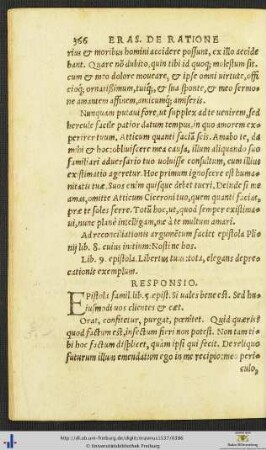 366 ERAS. DE RATIONE
tius & moribus homini accidere possunt, ex illo accide
bant. Quare nõ dubito, quin tibi id quoq; molestum sit.
cum & meo dolore moueare, & ipse omni uirtute, offi
cioq́; ornatissimum, tuiq́;, & sua sponte, & meo sermo
ne amantem affinem, amicumq́; amiseris.
Nunquam putaui fore, ut supplex ad te uenirem, sed
hercule facile patior datum tempus, in quo amorem ex-
perirer tuum. Atticum quanti faciã scis. Amabo te, da
mihi & hoc: obliuiscere mea causa, illum aliquando suo
familiari aduersario tuo uoluisse consultum, cum illius
existimatio ageretur. Hoc primum ignoscere est huma
nitatis tuæ. Suos enim quisque debet tueri. Deinde si me
amas, omitte Atticum Ciceroni tuo, quem quanti facias,
præ te soles ferre. Totũ hoc, ut, quod semper existima-
ui, nunc planè intelligam, me à te multum amari.
Ad reconciliationis argumētum facit epistola Pli-
nij lib. 8. cuius initium: Nostine hos.
Lib. 9. epistola. Libertus tuus tota, elegans depre
cationis exemplum.
RESPONSIO.
EPistola famil. lib. 5. epist. Si uales bene est. Sed hu-
iusmodi uos clientes & cæt.
Orat, confitetur, purgat, pœnitet. Quid quæris?
quod factum est, infectum fieri non potest. Non tam ti
bi hoc factum displicet, quàm ipsi qui fecit. De reliquo
futurum illum emendatiorem ego in me recipio: meo peri
culo,
http://dl.ub.uni-freiburg.de/diglit/erasmus1537/0386
© Universitätsbibliothek Freiburg
Baden-Württemberg